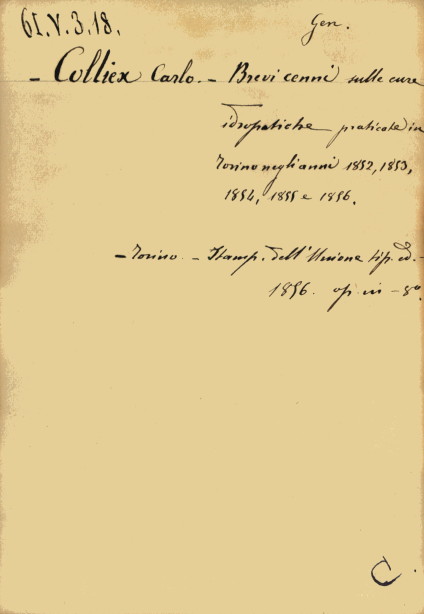 61.V.3.18.
Gen.
- Colliex Carlo. - Brevi cenni sulle cure
idropatiche praticate in
Torino negli anni 1852, 1853,
1854, 1855 e 1856.
- Torino - Stamp. dell'Unione tip. ed. -
1856. op. in - 8º.
C.